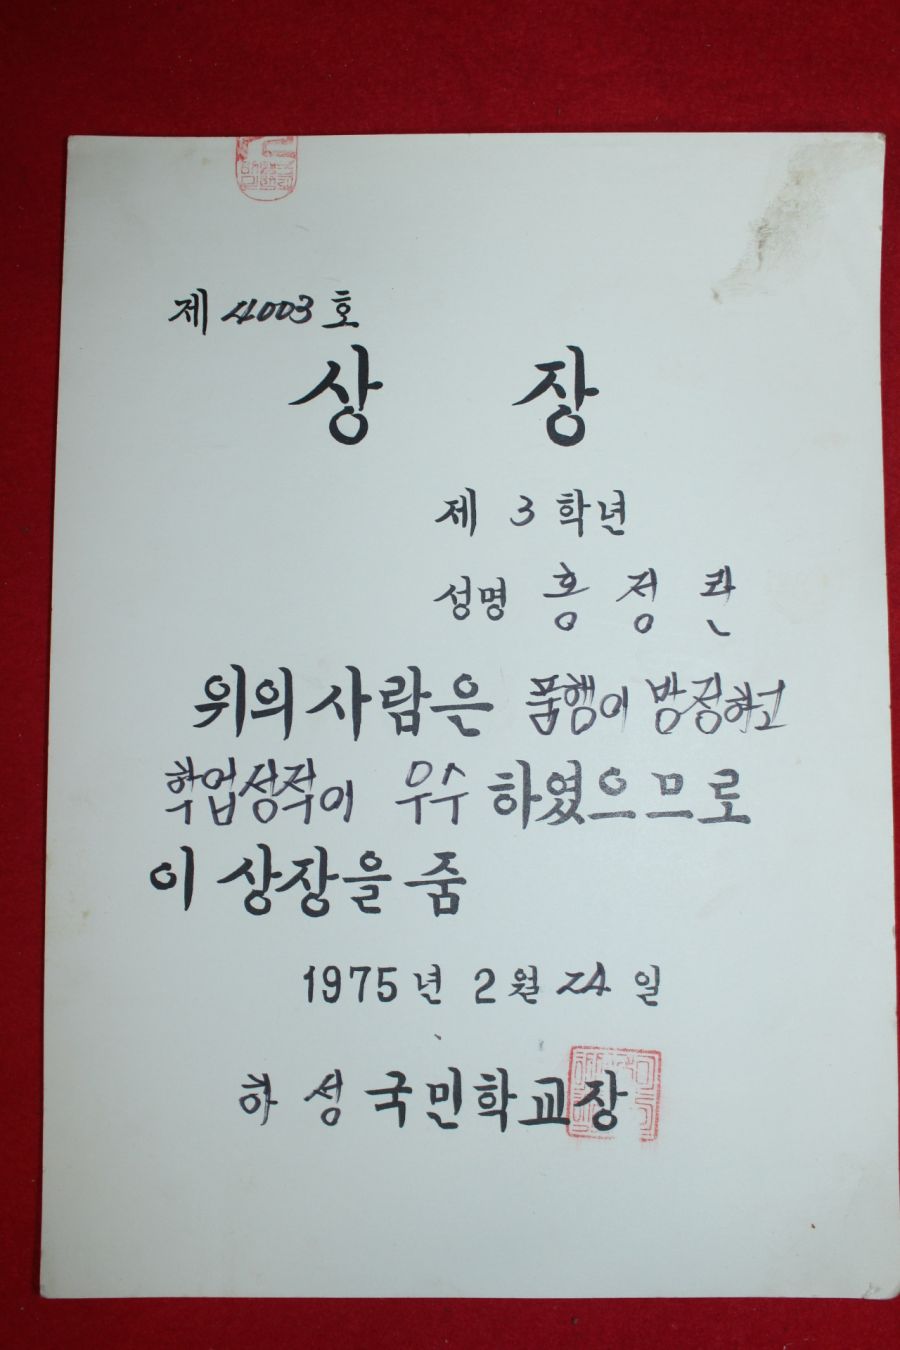 제 4003 호
상 장
제 3 학년
성명 홍 정 관
위의 사람은 품행이 방정하고
학업성적이 우수 하였으므로
이 상장을 줌
1975년 2월 24일
하 성 국민학교장